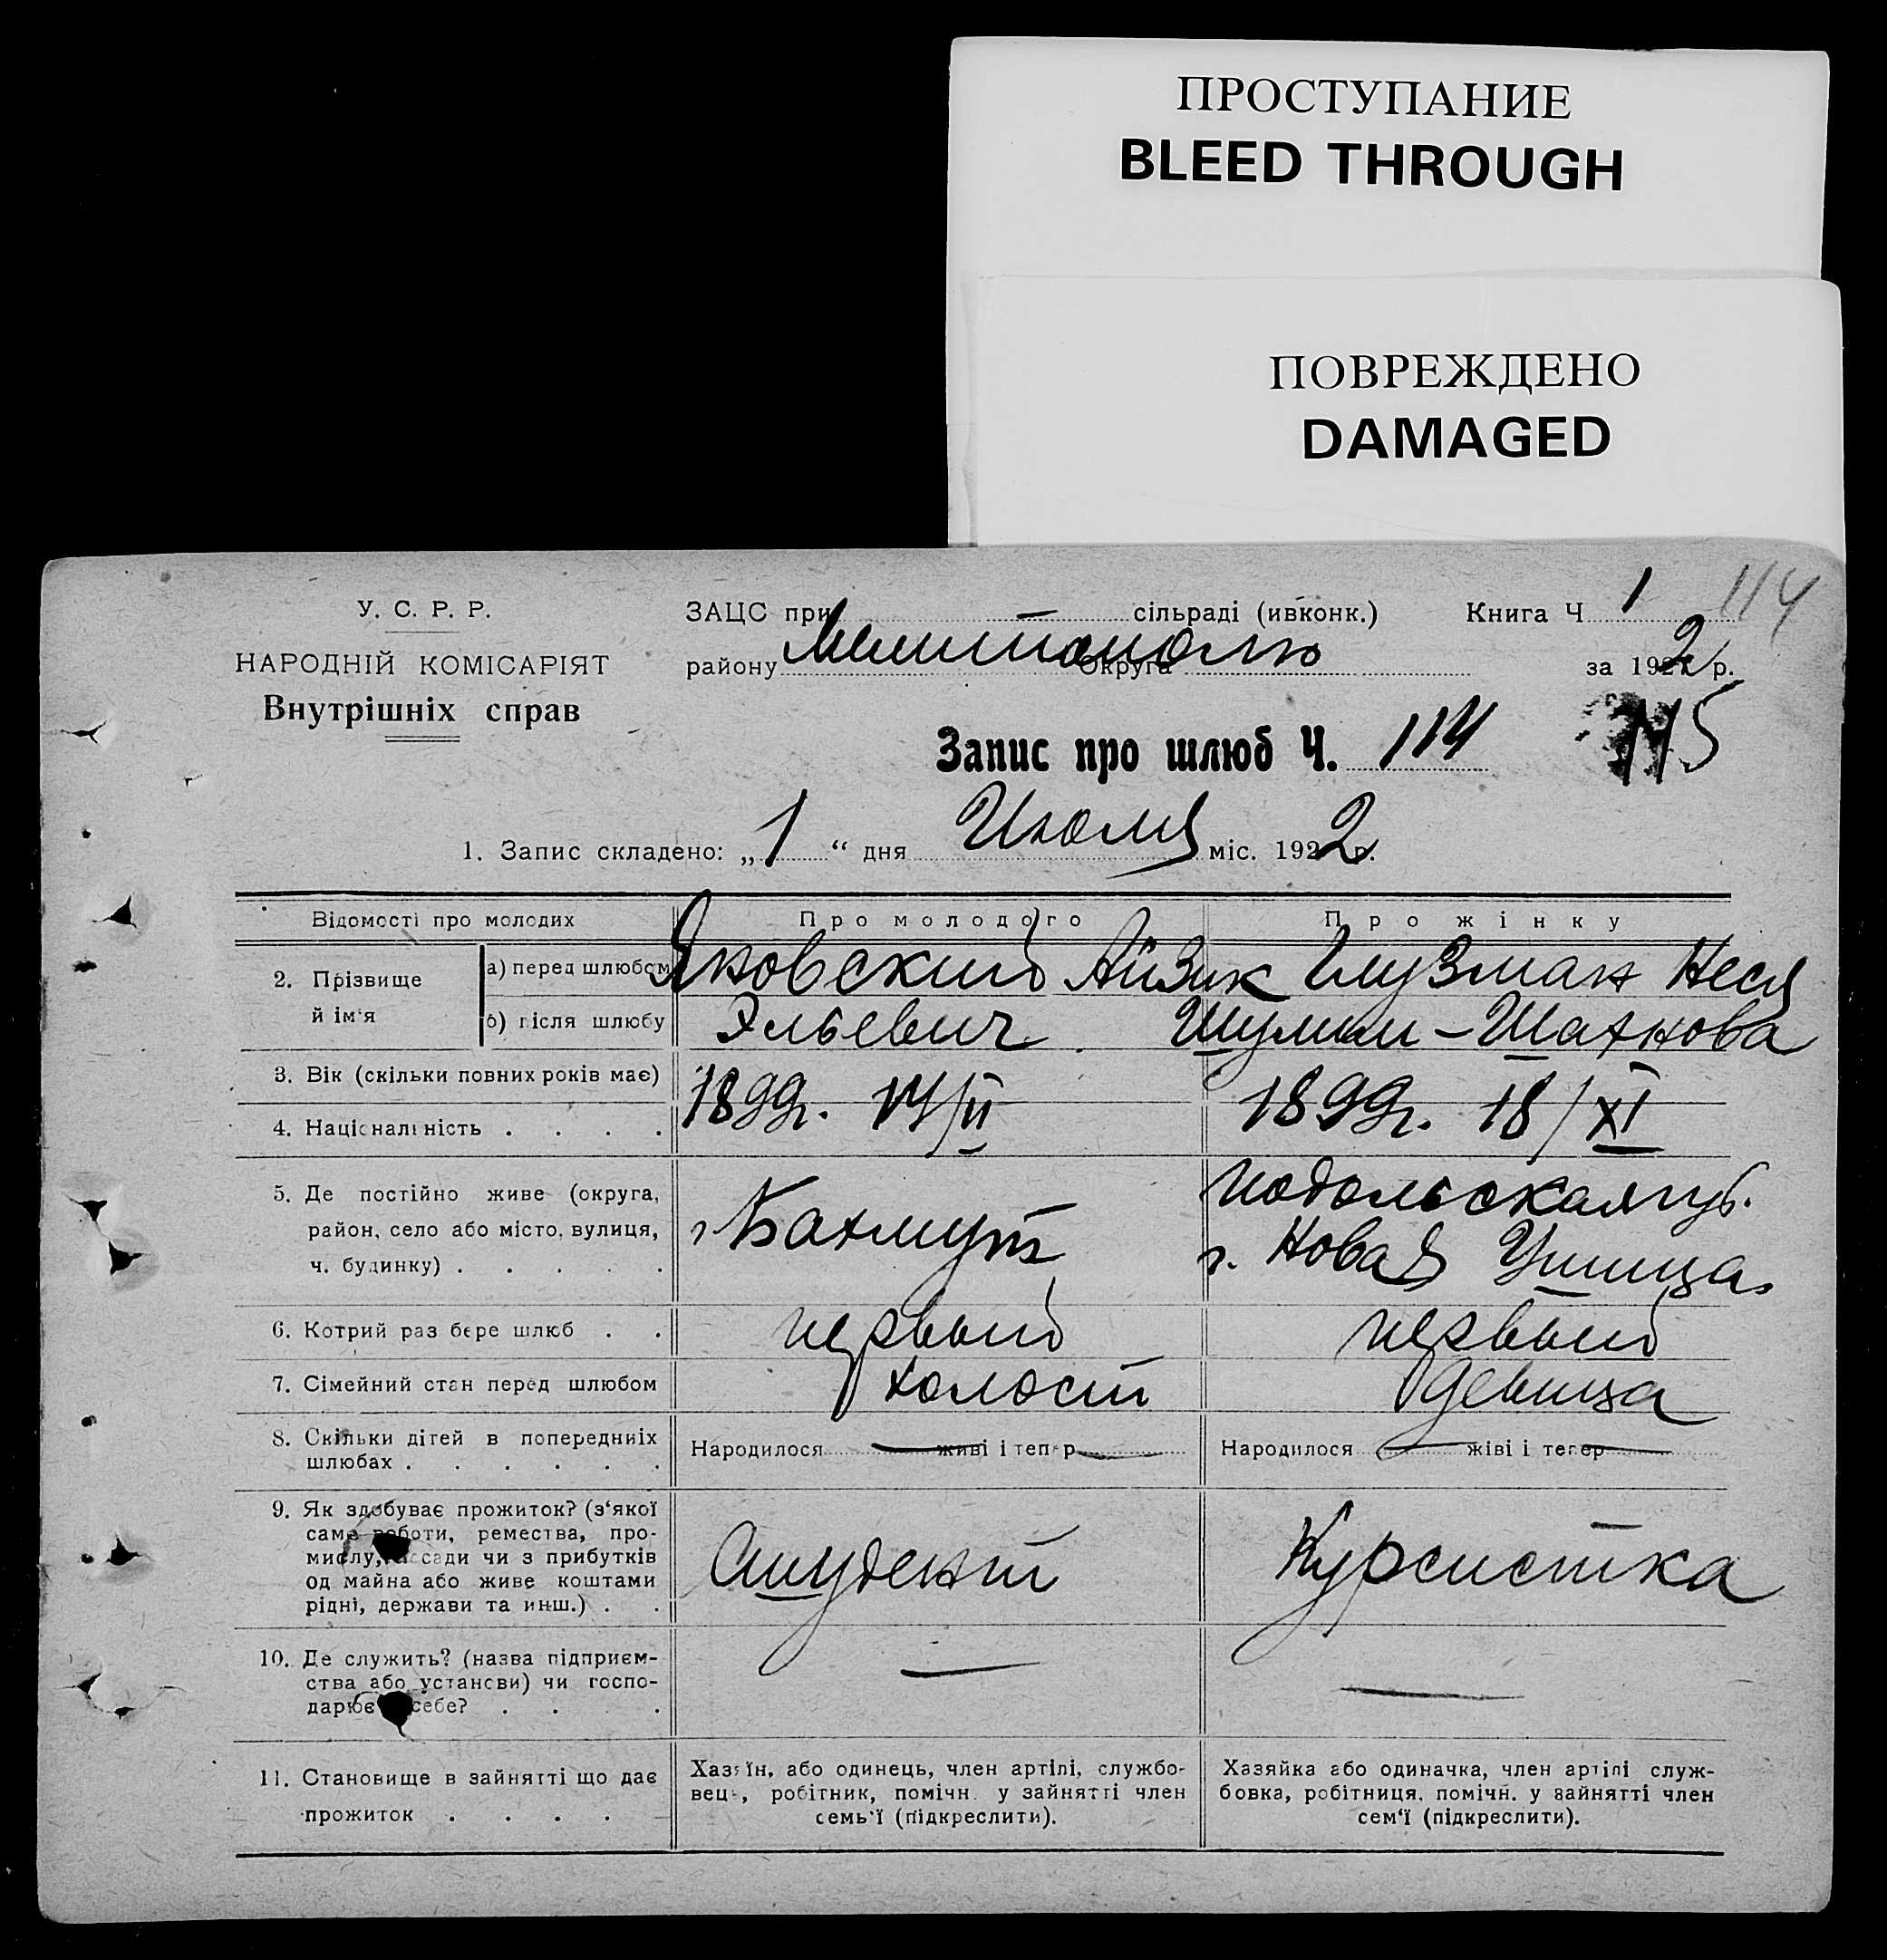 ПРОСТУПАНИЕ
BLEED THROUGH
ПОВРЕЖДЕНО
DAMAGED
114
У. С. Р. Р.
НАРОДНІЙ КОМІСАРІЯТ
Внутрішніх справ
ЗАЦС при сільраді (ивконк.) Книга Ч 1
району Мелитополю Округа за 1922 р.
Запис про шлюб Ч. 114 115
1. Запис складено: „1“ дня Июля міс. 1922 р.
Відомості про молодих Про молодого Про жінку
2. Прізвище й ім‘я а) перед шлюбом Яновский Айзик Глузман Неся
б) після шлюбу Эльевич Шулим-Шахнова
3. Вік (скільки повних років має) 1899г. 14/II 1899г. 18/XI
4. Національність . . . .
5. Де постійно живе (округа, район, село або місто, вулиця, ч. будинку) . . . . .
г. Бахмут
Подольская губ.
г. Новая Ушица
6. Котрий раз бере шлюб . . первый первый
7. Сімейний стан перед шлюбом холост девица
8. Скільки дітей в попередниіх шлюбах . . . . . .
Народилося — живі і тепер — Народилося — жіві і тепер —
9. Як здобуває прожиток? (з‘якої
саме роботи, ремества, про-
мислу, посади чи з прибутків
од майна або живе коштами
рідні, держави та инш.) . .
Студент Курсистка
10. Де служить? (назва підприєм-
ства або установи) чи госпо-
дарює себе? . . . .
— —
11. Становище в зайнятті що дає
прожиток . . . .
Хазяїн, або одинець, член артілі, службо-
вець, робітник, помічн. у зайнятті член
семь‘ї (підкреслити).
Хазяйка або одиначка, член артілі служ-
бовка, робітниця, помічн. у зайнятті член
сем‘ї (підкреслити).